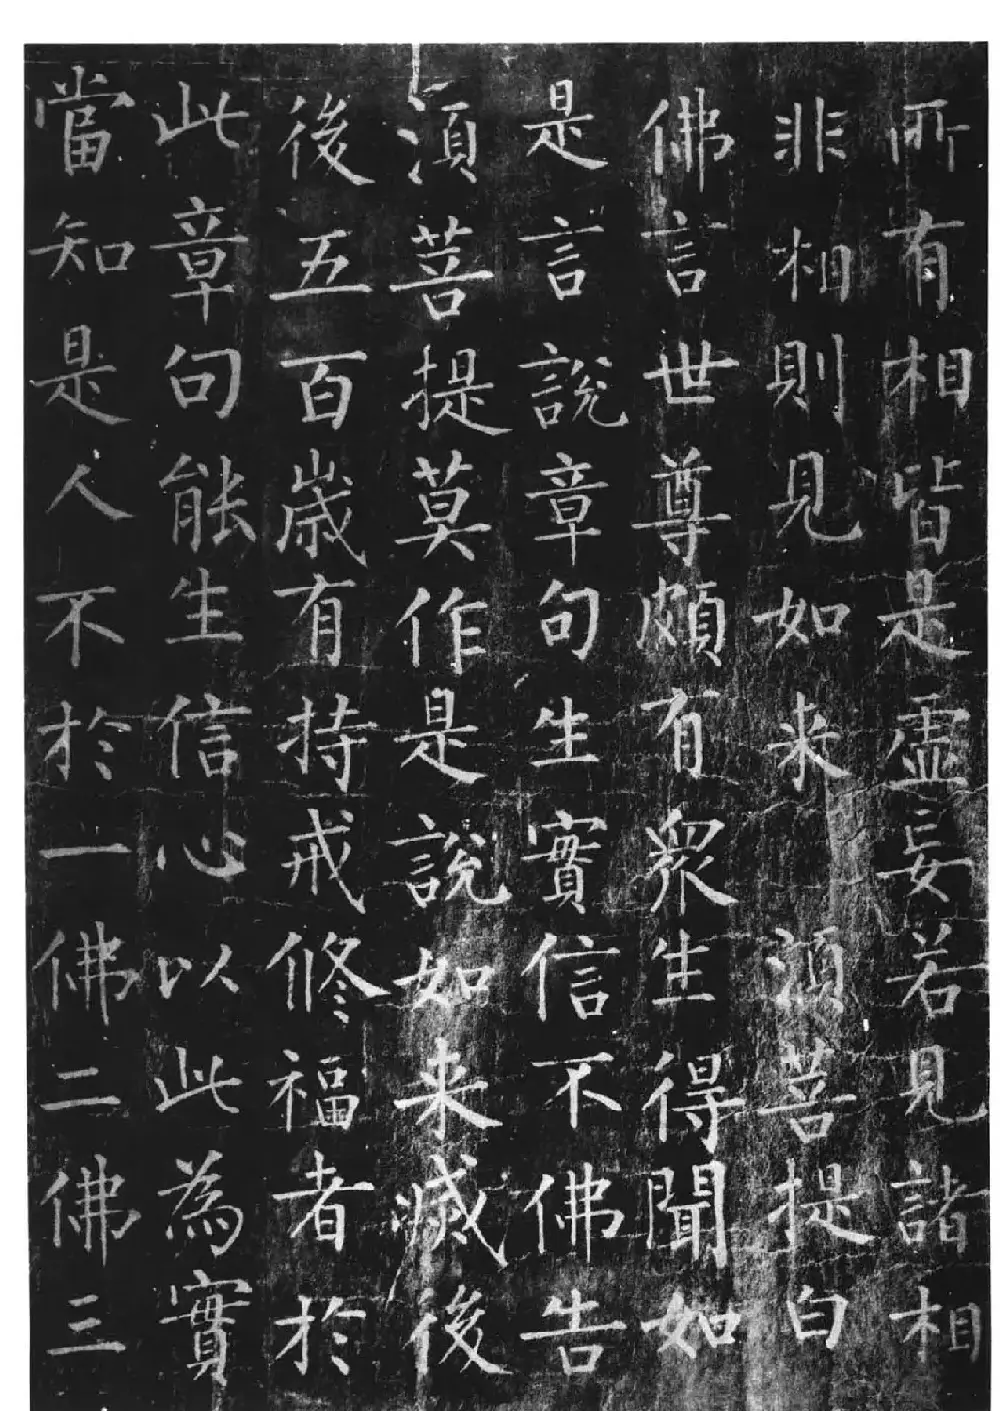 所有相皆是虛妄若見諸相
非相則見如来　湏菩提白
佛言世尊頗有衆生得聞如
是言說章句生實信不佛告
湏菩提莫作是說如来滅後
後五百歲有持戒修福者於
此章句能生信心以此為實
當知是人不於一佛二佛三